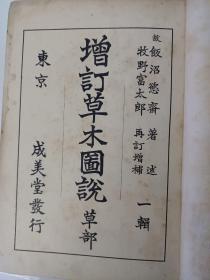 故 飯沼慾齋 著述
牧野富太郎 再訂增補
一輯
增訂草木圖說 草部
東京
成美堂發行